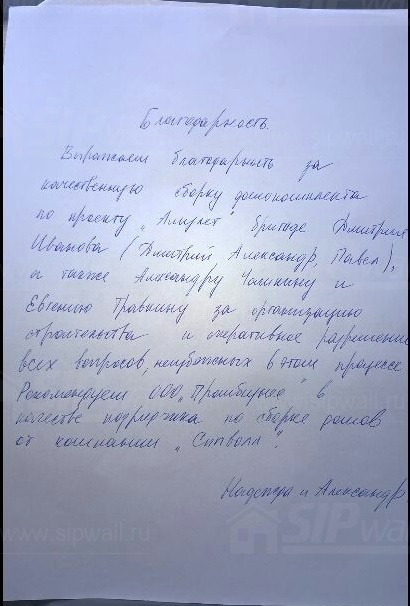 Благодарность.
Выражаем благодарность за
качественную сборку домокомплекта
по проекту „Амулет" бригаде Дмитрия
Иванова (Дмитрий, Александр, Павел),
а также Александру Чашкину и
Евгению Травкину за организацию
строительства и оперативное разрешение
всех вопросов, неизбежных в этом процессе
Рекомендуем ООО в
качестве подрядчика по сборке домов
от компании „Сипволл".
Надежда и Александр
www.sipwall.ru
SIPwall